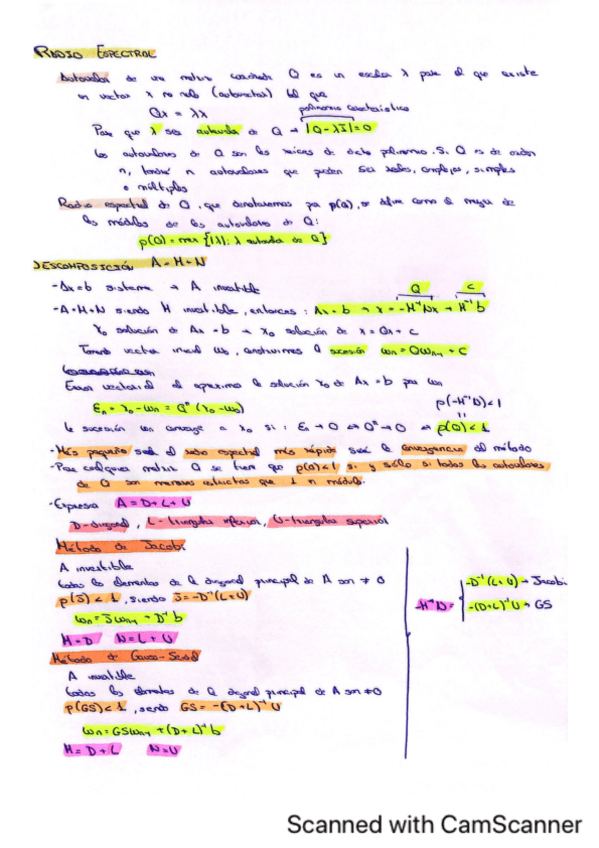 RADIO ESPECTRAL
Autovalor de una matriz cuadrada Q es un escalar λ para el que existe
un vector x no nulo (autovector) tal que
Qx = λx polinomio característico
Para que λ sea autovalor de Q → |Q-λI|=0
Los autovalores de Q son las raíces de dicho polinomio. Si Q es de orden
n, tendrá n autovalores que pueden ser reales, complejos, simples
o múltiples
Radio espectral de Q, que denotaremos por ρ(Q), se define como el mayor de
los módulos de los autovalores de Q:
ρ(Q) = max {|λ|: λ autovalor de Q}
DESCOMPOSICIÓN A=M+N
-Ax=b sistema → A invertible
Q C
-A=M+N siendo M invertible, entonces: Ax=b → x = -M⁻¹Nx + M⁻¹b
x₀ solución de Ax=b → x₀ solución de x = Qx + c
Tomando vector inicial w₀, construimos la sucesión wn = Qwn-1 + C
Error vectorial al aproximar la solución x₀ de Ax=b por wn
εn = x₀-wn = Qⁿ (x₀-w₀) ρ(-M⁻¹N)<1
la sucesión wn converge a x₀ si: εn→0 ⇔ Qⁿ→0 ⇔ ρ(Q)<1
-Más pequeño será el radio espectral más rápida será la convergencia del método
-Para cualquier matriz Q se tiene que ρ(Q)<1 si y sólo si todos los autovalores
de Q son menores estrictos que 1 en módulo.
-Expresar A=D+L+U
D-diagonal, L-triangular inferior, U-triangular superior
Método de Jacobi
A invertible
todos los elementos de la diagonal principal de A son ≠ 0
ρ(J)<1, siendo J=-D⁻¹(L+U)
wn = Jwn-1 + D⁻¹b
M=D N=L+U
Método de Gauss-Seidel
A invertible
todos los elementos de la diagonal principal de A son ≠0
ρ(GS)<1, siendo GS = -(D+L)⁻¹U
wn = GSwn-1 + (D+L)⁻¹b
M=D+L N=U
-D⁻¹(L+U) → Jacobi
-M⁻¹N=
-(D+L)⁻¹U → GS
Scanned with CamScanner